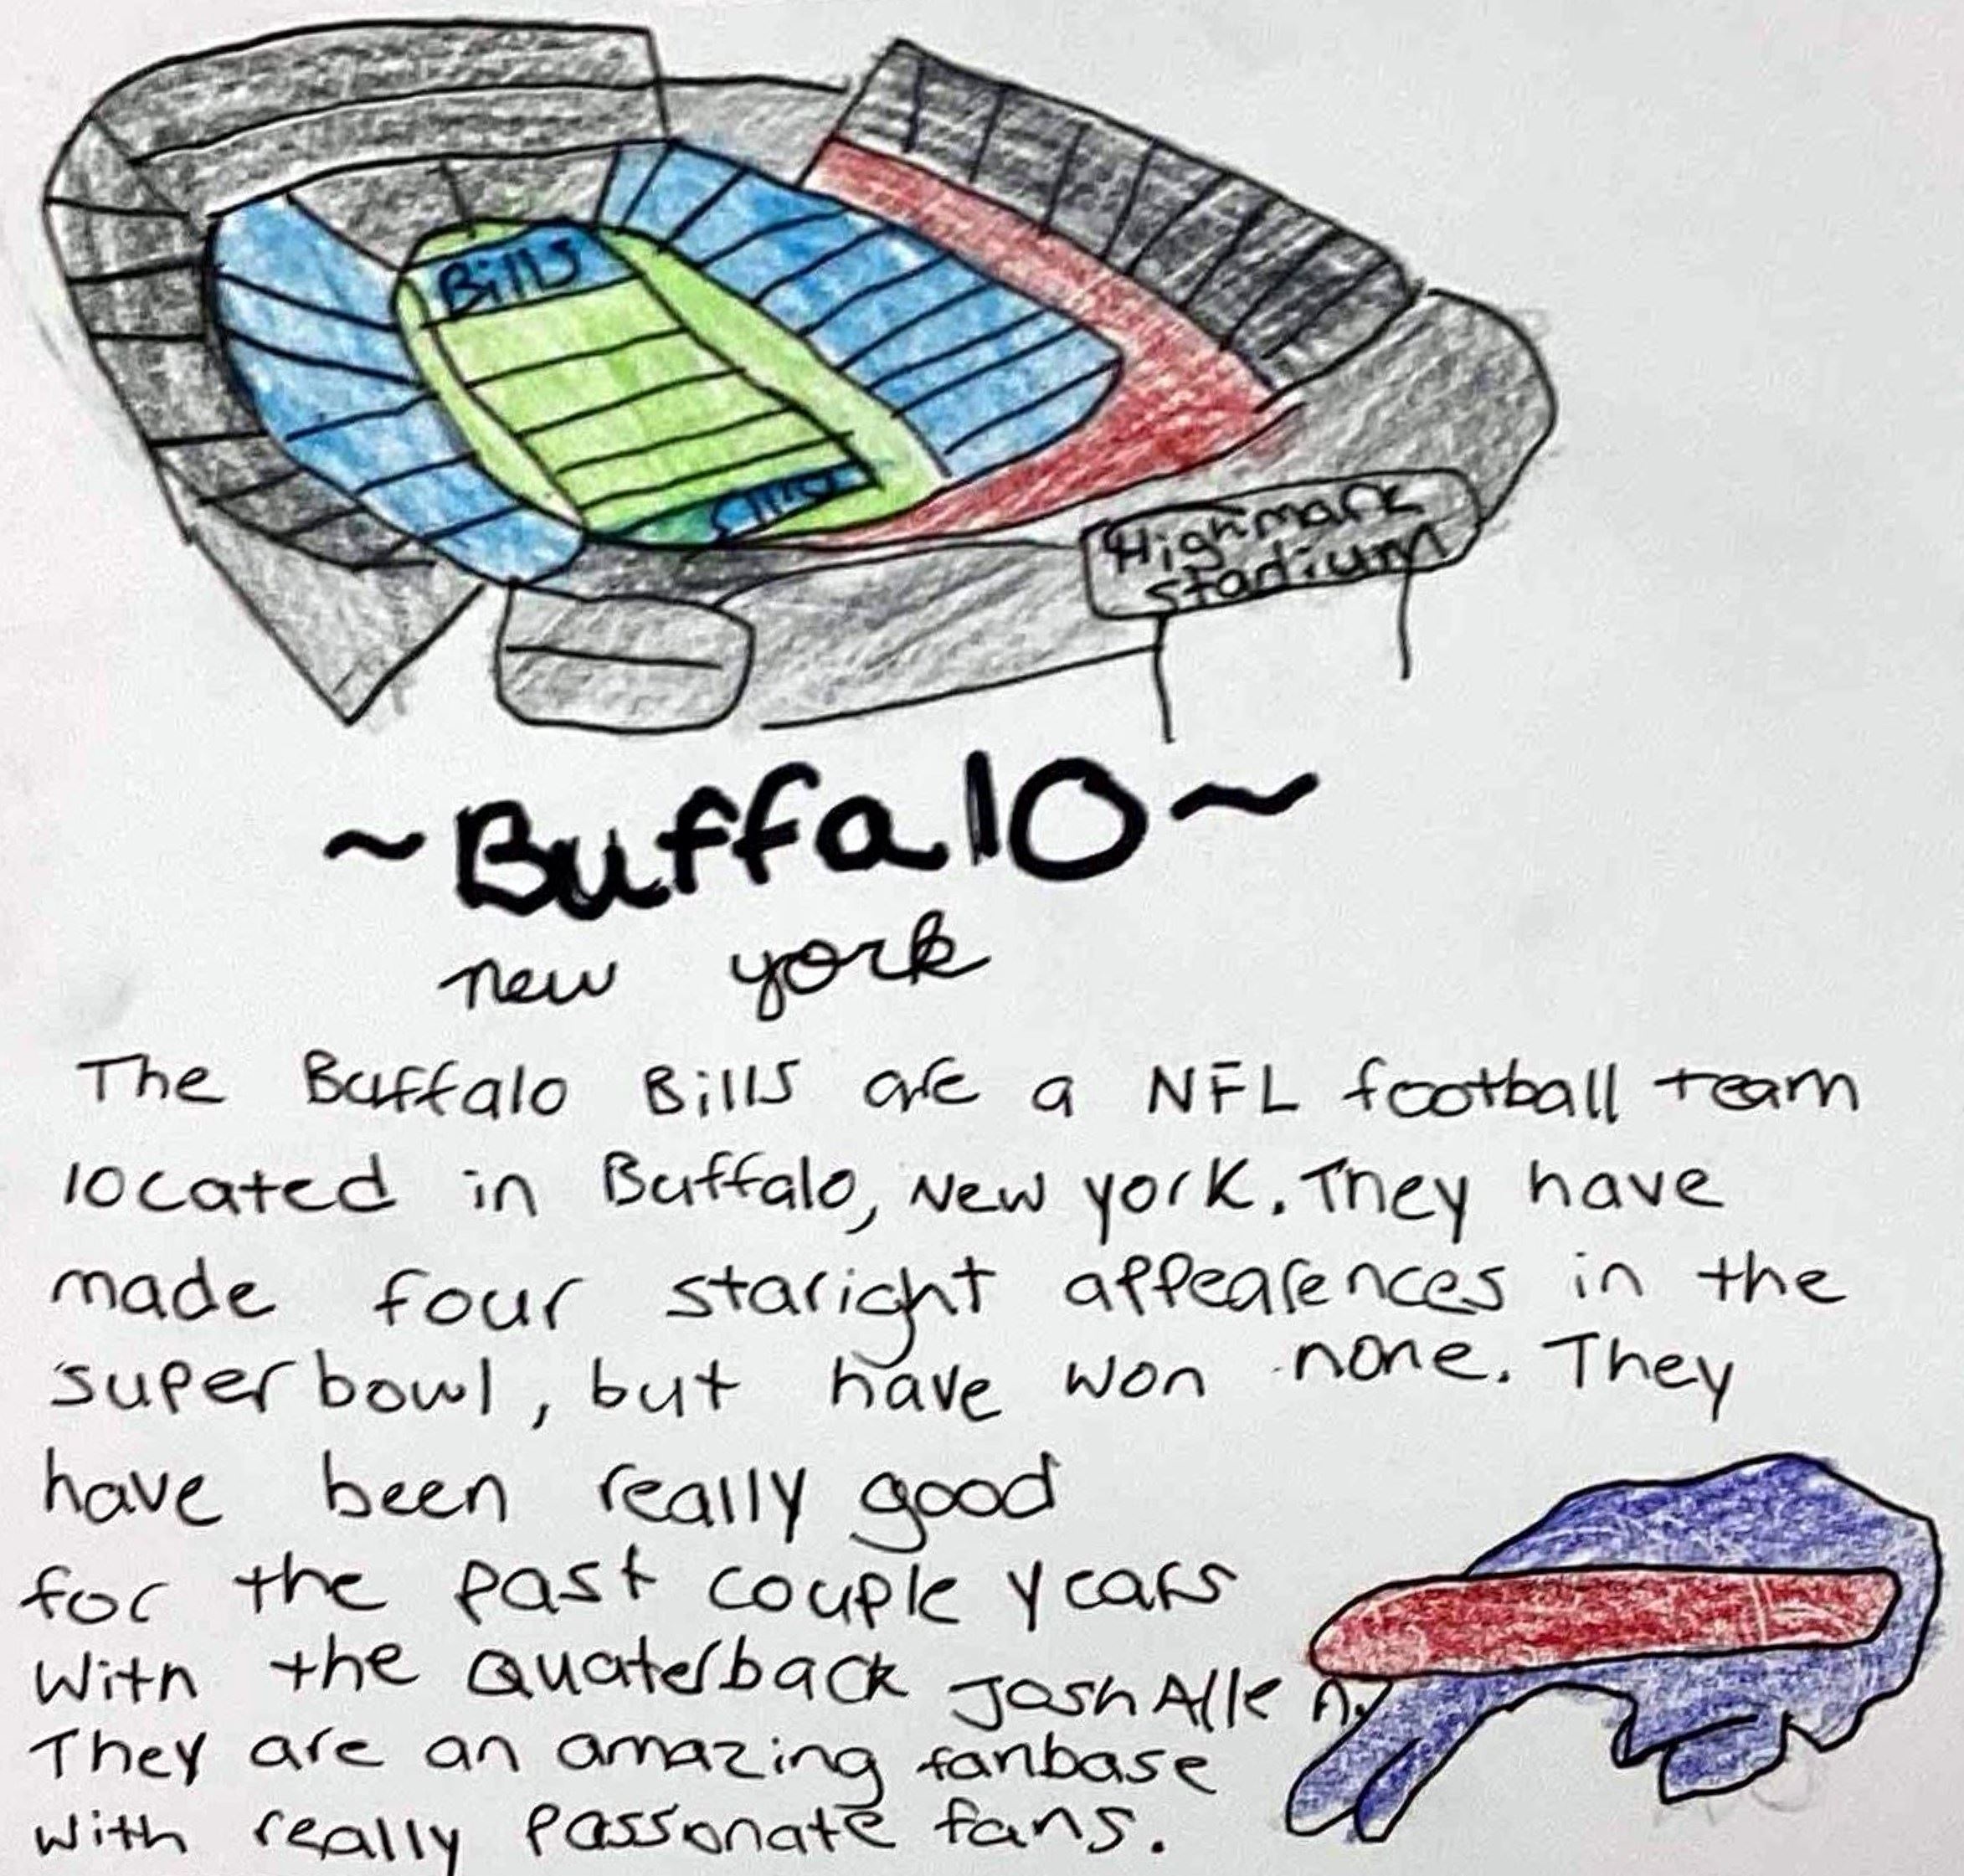 Bills
Bills
Highmark
Stadium
~Buffalo~
new york
The Buffalo Bills are a NFL football team
located in Buffalo, New york. They have
made four staright appearences in the
superbowl, but have won none. They
have been really good
for the past couple years
with the Quaterback Josh Allen.
They are an amazing fanbase
with really passonate fans.